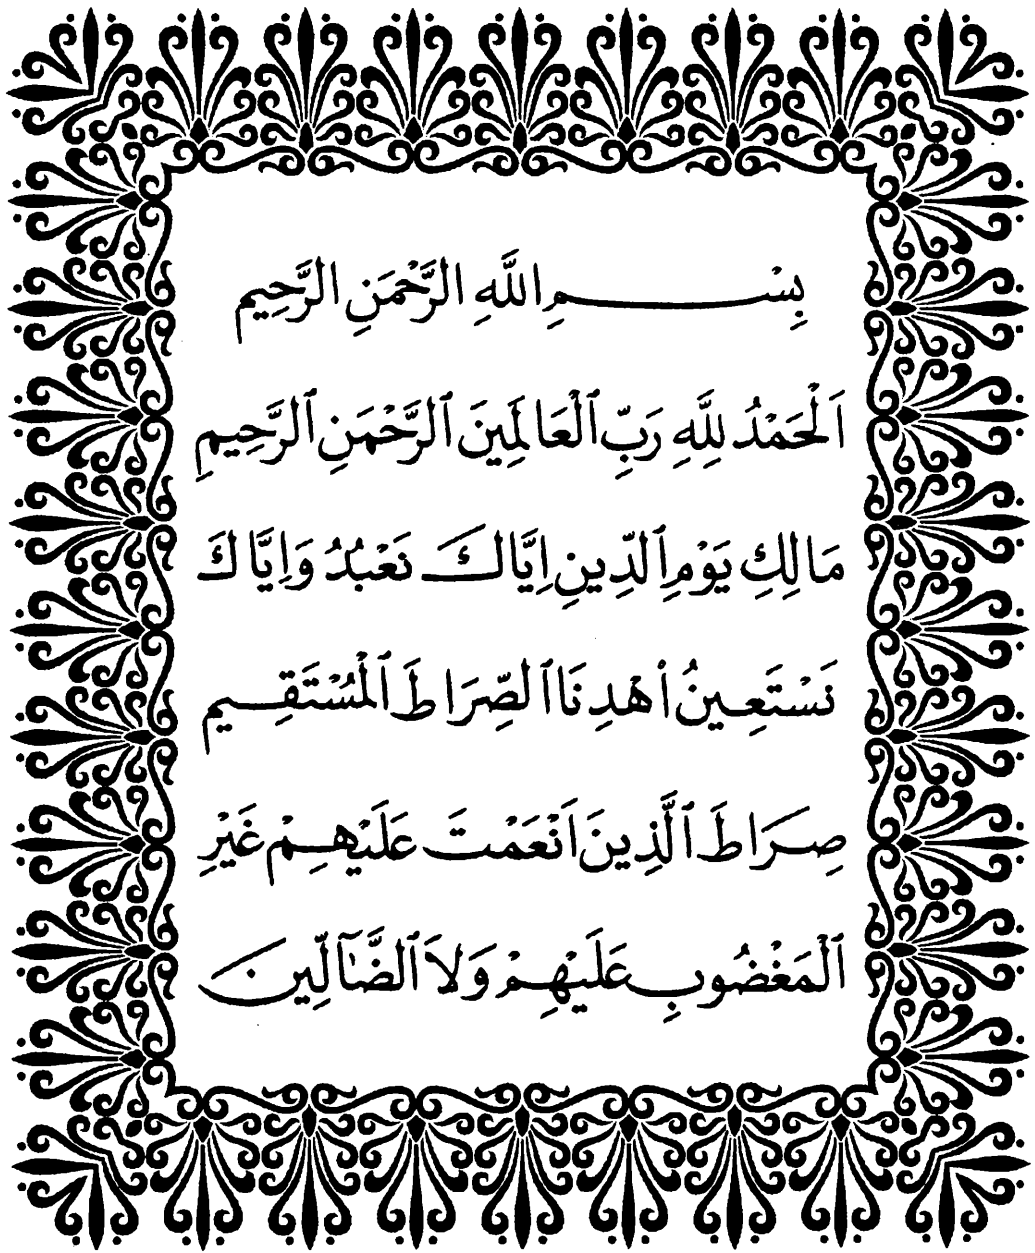 بِسْمِ اللَّهِ الرَّحْمَنِ الرَّحِيمِ
اَلْحَمْدُ لِلَّهِ رَبِّ ٱلْعَالَمِينَ ٱلرَّحْمَنِ ٱلرَّحِيمِ
مَالِكِ يَوْمِ ٱلدِّينِ اِيَّاكَ نَعْبُدُ وَاِيَّاكَ
نَسْتَعِينُ ٱهْدِنَا ٱلصِّرَاطَ ٱلْمُسْتَقِيم
صِرَاطَ ٱلَّذِينَ اَنْعَمْتَ عَلَيْهِمْ غَيْرِ
ٱلْمَغْضُوبِ عَلَيْهِمْ وَلاَ ٱلضَّآلِّين